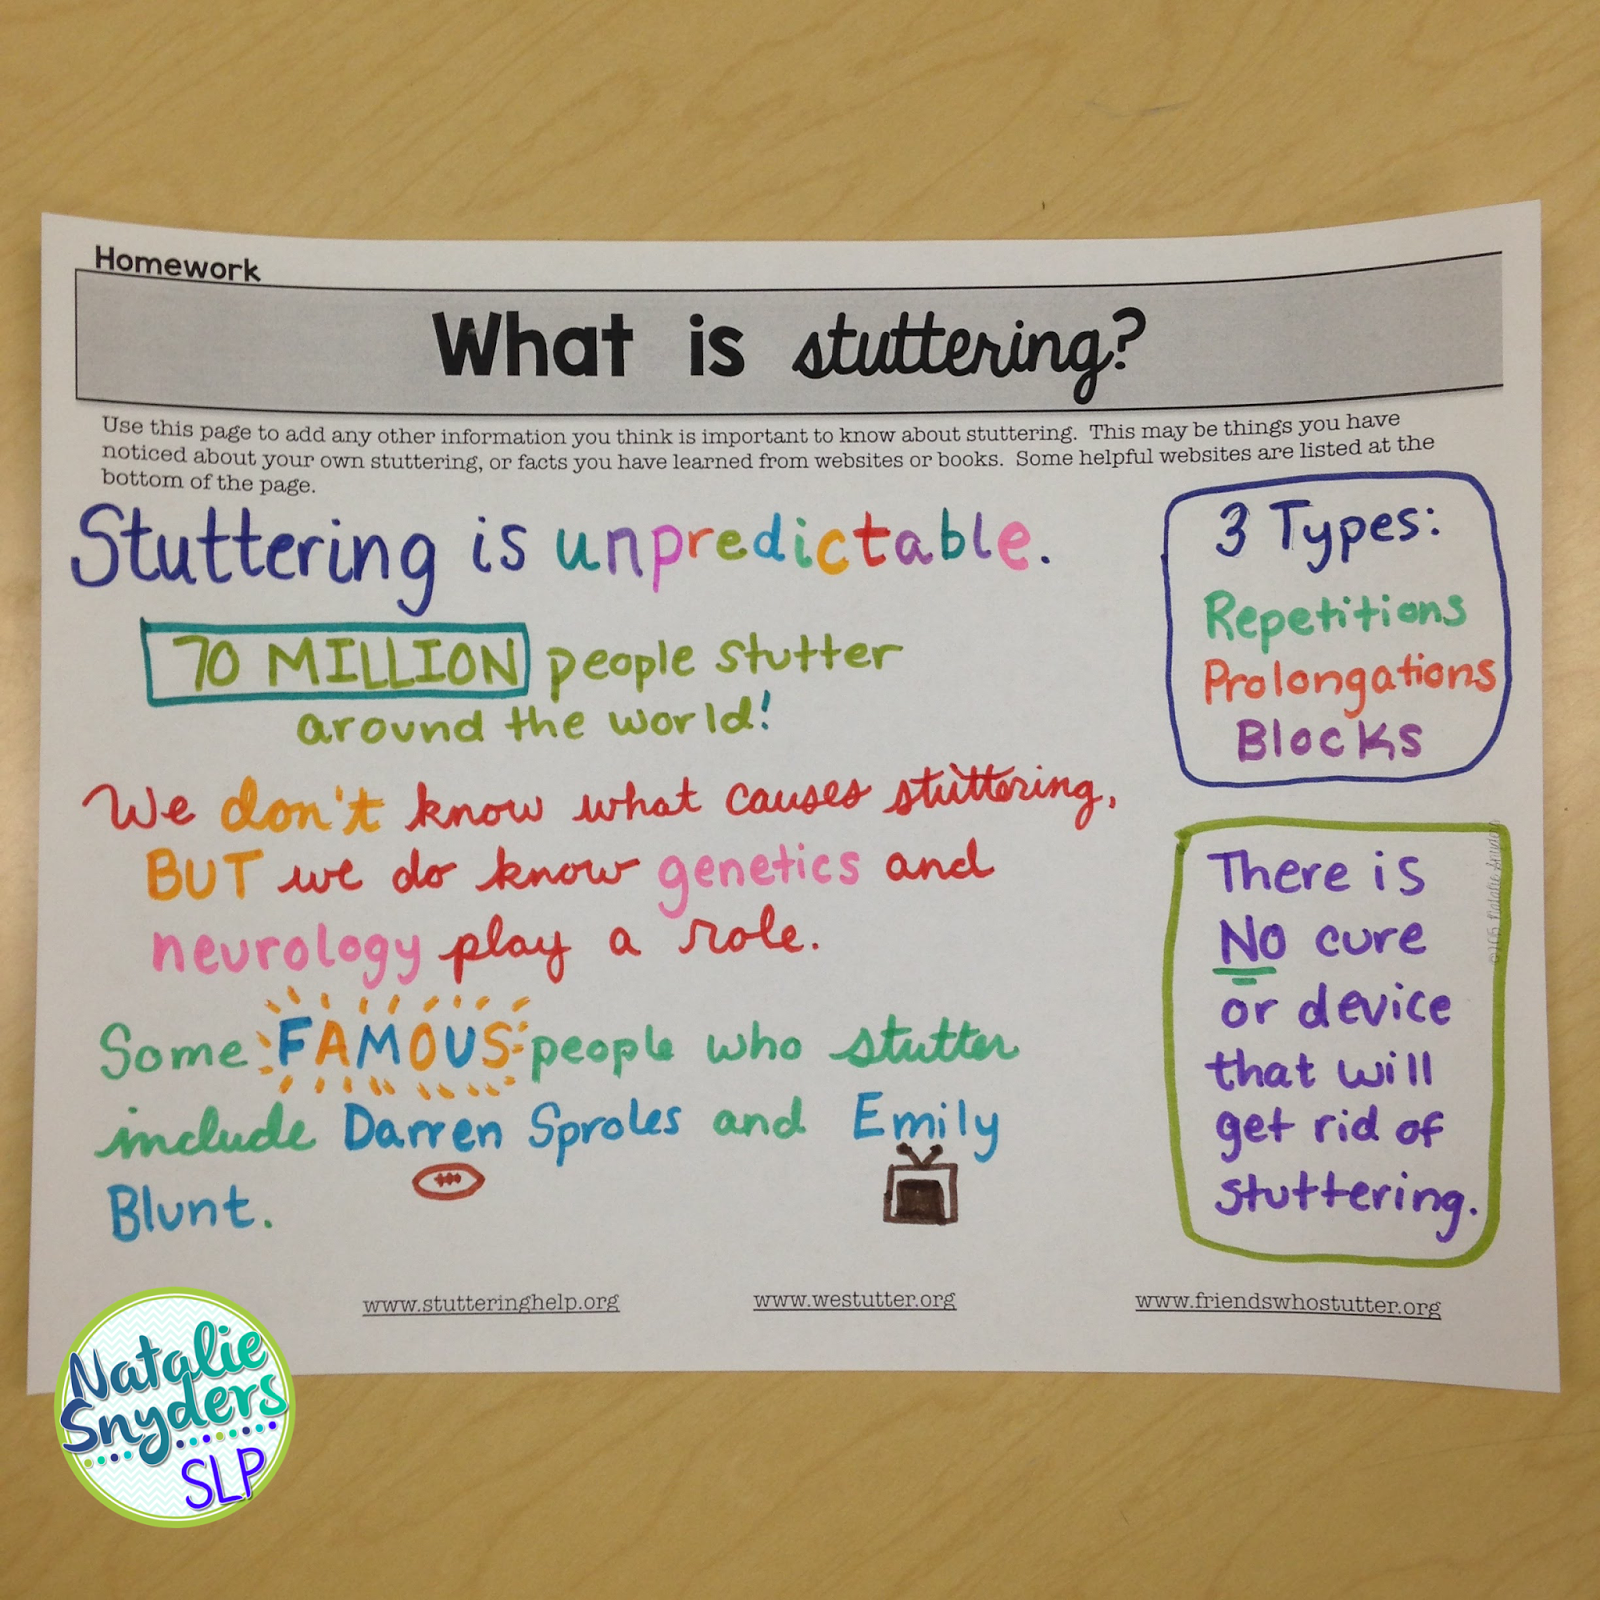 Homework
What is stuttering?
Use this page to add any other information you think is important to know about stuttering. This may be things you have
noticed about your own stuttering, or facts you have learned from websites or books. Some helpful websites are listed at the
bottom of the page.
Stuttering is unpredictable.
70 MILLION people stutter
around the world!
We don't know what causes stuttering,
BUT we do know genetics and
neurology play a role.
Some FAMOUS people who stutter
include Darren Sproles and Emily
Blunt.
3 Types:
Repetitions
Prolongations
Blocks
There is
NO cure
or device
that will
get rid of
stuttering.
©2015 Natalie Snyders
www.stutteringhelp.org
www.westutter.org
www.friendswhostutter.org
Natalie
Snyders
SLP